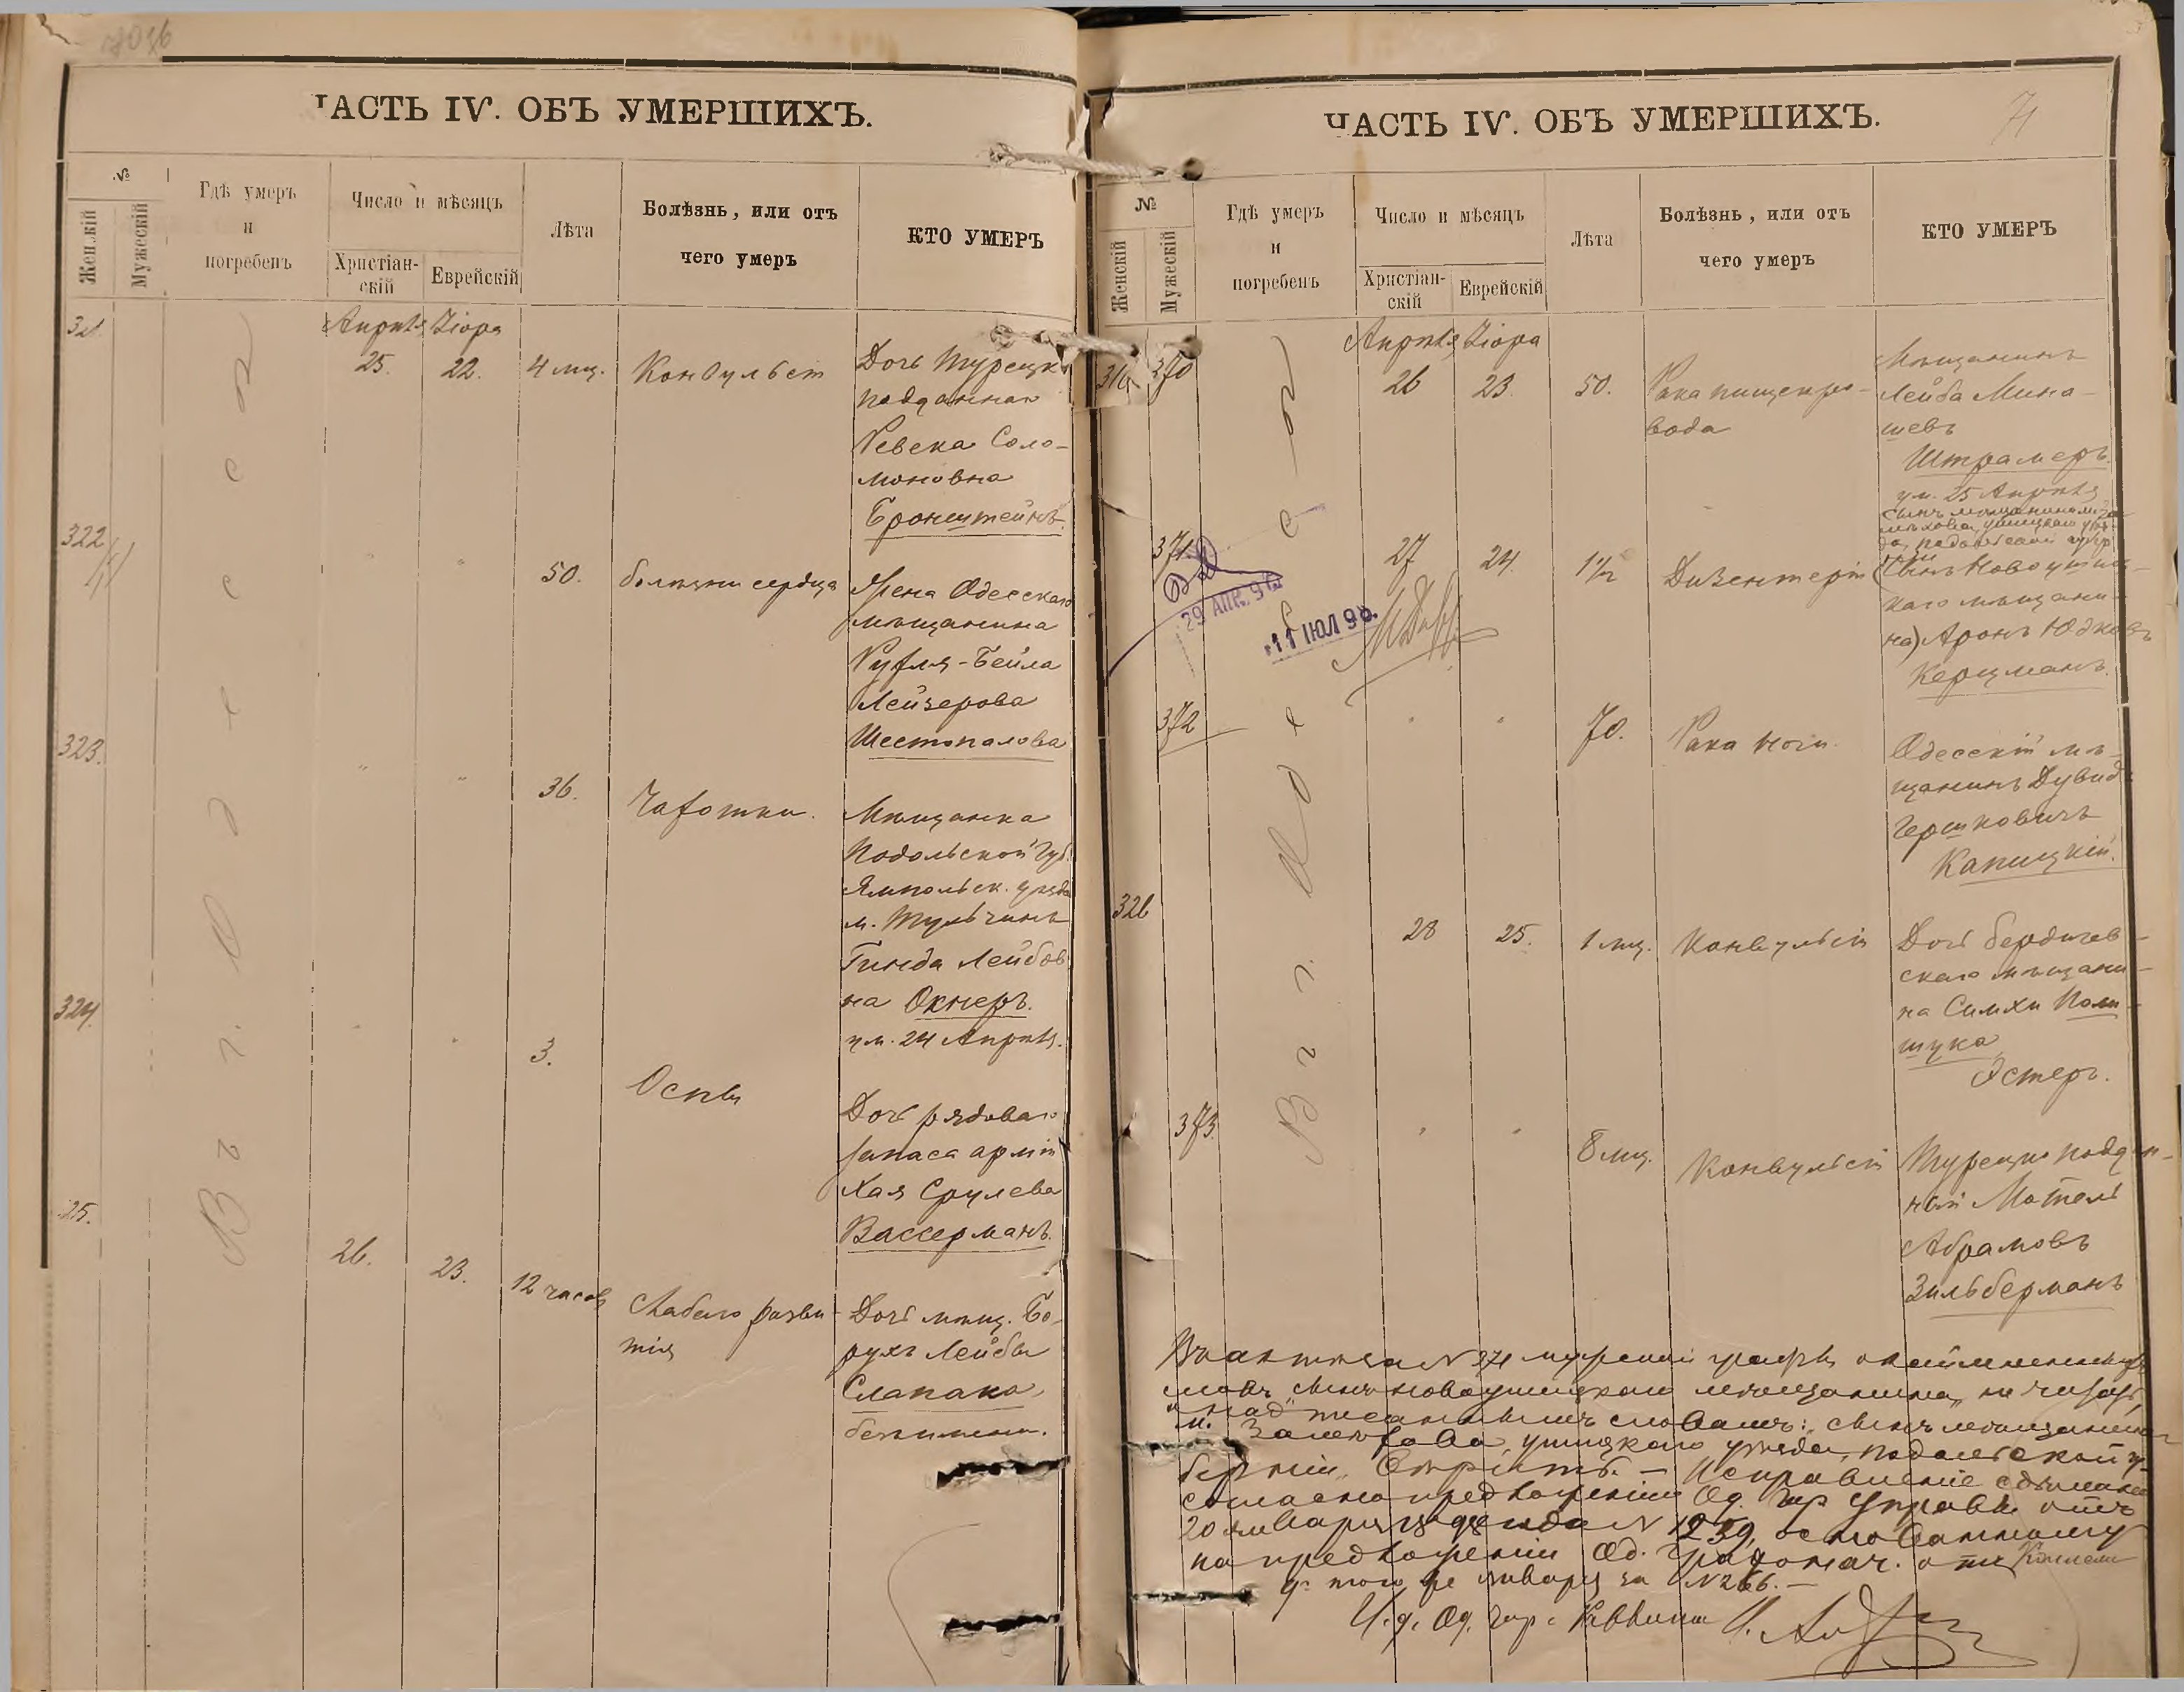 ЧАСТЬ IV. ОБЪ УМЕРШИХЪ.
№
Женскій
Мужескій
Гдѣ умеръ
и
погребенъ
Число и мѣсяцъ
Христіан-
скій
Еврейскій
Лѣта
Болѣзнь, или отъ
чего умеръ
КТО УМЕРЪ
Въ г. Одессѣ
Апрѣля Ііора
321
25. 22. 4 мц. Конвульсіи
Дочь Турецк.
подданнаго
Ревека Соло-
моновна
Бронштейнъ.
322
" " 50. болѣзни сердца
Жена Одесскаго
мѣщанина
Рухля-Бейла
Лейзерова
Шестопалова
323.
" " 36. Чахотки.
Мѣщанка
Подольской губ.
Ямпольск. уѣзда
м. Тульчинъ
Гинда Лейбов-
на Окнеръ.
ум. 24 Апрѣля.
324.
" " 3. Оспы
Дочь рядоваго
запаса арміи
Хая Срулева
Вассерманъ.
25.
26. 23. 12 часов Слабаго разви-
тія
Дочь мѣщ. Бо-
рухъ Лейбы
Слапака,
безъимени.
ЧАСТЬ IV. ОБЪ УМЕРШИХЪ.
71
№
Женскій
Мужескій
Гдѣ умеръ
и
погребенъ
Число и мѣсяцъ
Христіан-
скій
Еврейскій
Лѣта
Болѣзнь, или отъ
чего умеръ
КТО УМЕРЪ
Въ г. Одессѣ
Апрѣля Ііора
370
26 23. 50. Рака пищепро-
вода
Мѣщанинъ
Лейба Мина-
шевъ
Штрамеръ.
ум. 25 Апрѣля
сынъ мѣщанина м. За-
мѣхова, ушицкаго уѣз-
да, подольской губер
371.
29 АПР. 96
11 ІЮЛ 98.
27 24. 1½ Дизентеріи
(Сынъ Новоушиц-
каго мѣщани-
на) Аронъ Юдковъ
Керцманъ.
372
" " 70. Рака ноги.
Одесскій мѣ-
щанинъ Дувидъ
Гершковичъ
Капицкій.
326
28 25. 1 мц. Конвульсіи
Дочь бердичев-
скаго мѣщани-
на Симхи Поли-
щука,
Эстеръ.
373.
" " 8 мц. Конвульсіи
Турецко поддан-
ный Мотель
Абрамовъ
Зильберманъ
Въ актѣ за № 371 мужской графы
словъ „сынъ новоушицкаго мѣщанина" не читать,
а надписаннымъ словамъ: „сынъ мѣщанина
м. Замѣхова, ушицкаго уѣзда, подольской гу-
берніи" вѣрить. — Исправленіе сдѣлано
согласно предложенію Од. Гор. Управы отъ
20 января 1898 года № 1239, основанному
на предложеніи Од. Градонач. отъ
того же января за № 266.—
И. д. Од. Гор. Раввина